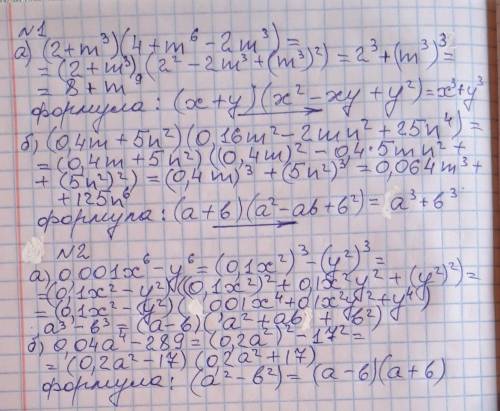 №1
а) (2+m³)(4+m⁶-2m³)=
=(2+m³)(2²-2m³+(m³)²)=2³+(m³)³=
=8+m⁹
формула: (x+y)(x²-xy+y²)=x³+y³
б) (0,4m+5n²)(0,16m²-2mn²+25n⁴)=
=(0,4m+5n²)((0,4m)²-0,4·5mn²+
+(5n²)²)=(0,4m)³+(5n²)³=0,064m³+
+125n⁶
формула: (a+b)(a²-ab+b²)=a³+b³
№2
а) 0,001x⁶-y⁶=(0,1x²)³-(y²)³=
=(0,1x²-y²)((0,1x²)²+0,1x²y²+(y²)²)=
=(0,1x²-y²)(0,001x⁴+0,1x²y²+y⁴)
a³-b³=(a-b)(a²+ab+b²)
б) 0,04a⁴-289=(0,2a²)²-17²=
=(0,2a²-17)(0,2a²+17)
формула: (a²-b²)=(a-b)(a+b)